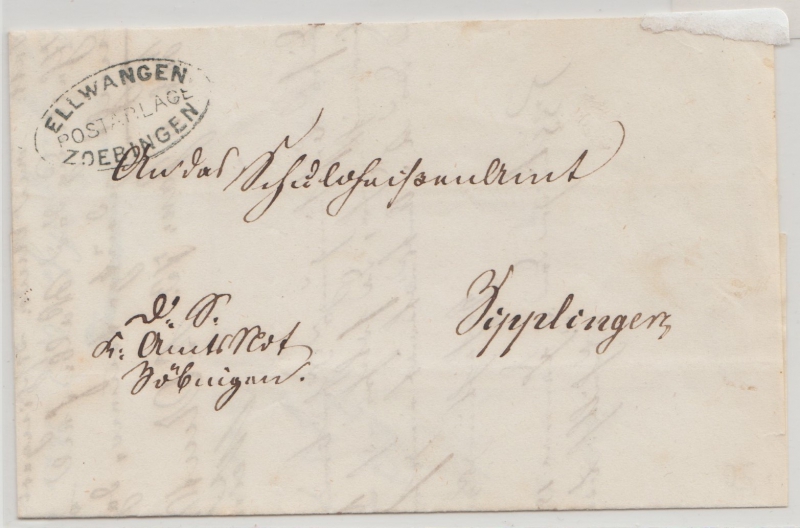 ELLWANGEN
POSTABLAGE
ZOEBINGEN
An das Schuldheißenamt
Zipplingen
D. S.
K. AmtsNot
Zöbingen.